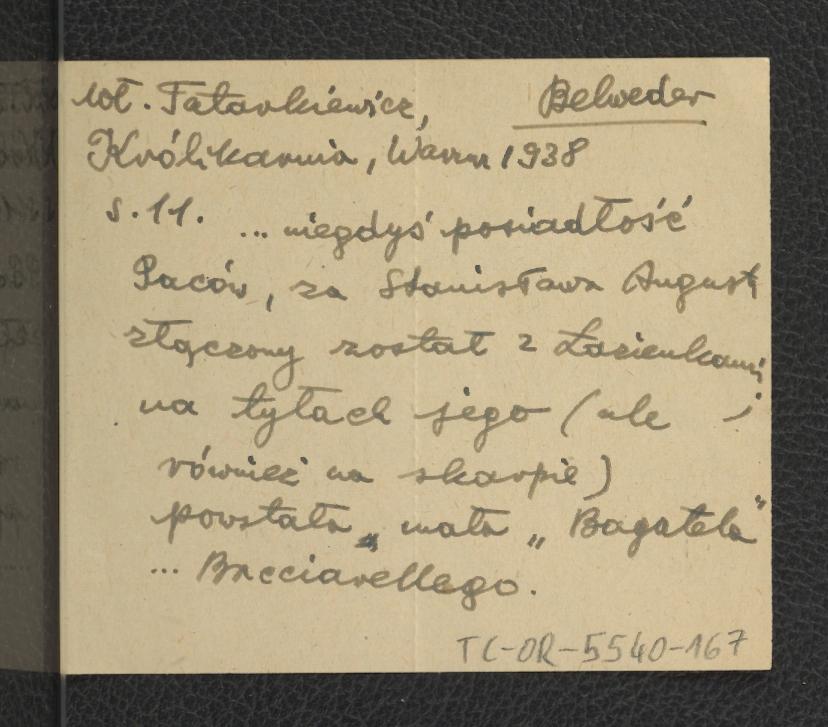 Wł. Tatarkiewicz, Belweder
Królikarnia, Warszw 1938
s. 11. ... niegdyś posiadłość
Paców, za Stanisława August
złączony został z Łazienkami
na tyłach jego (ale i
również na skarpie)
powstała mała „Bagatela”
... Bacciarellego.
TC-OR-5540-167